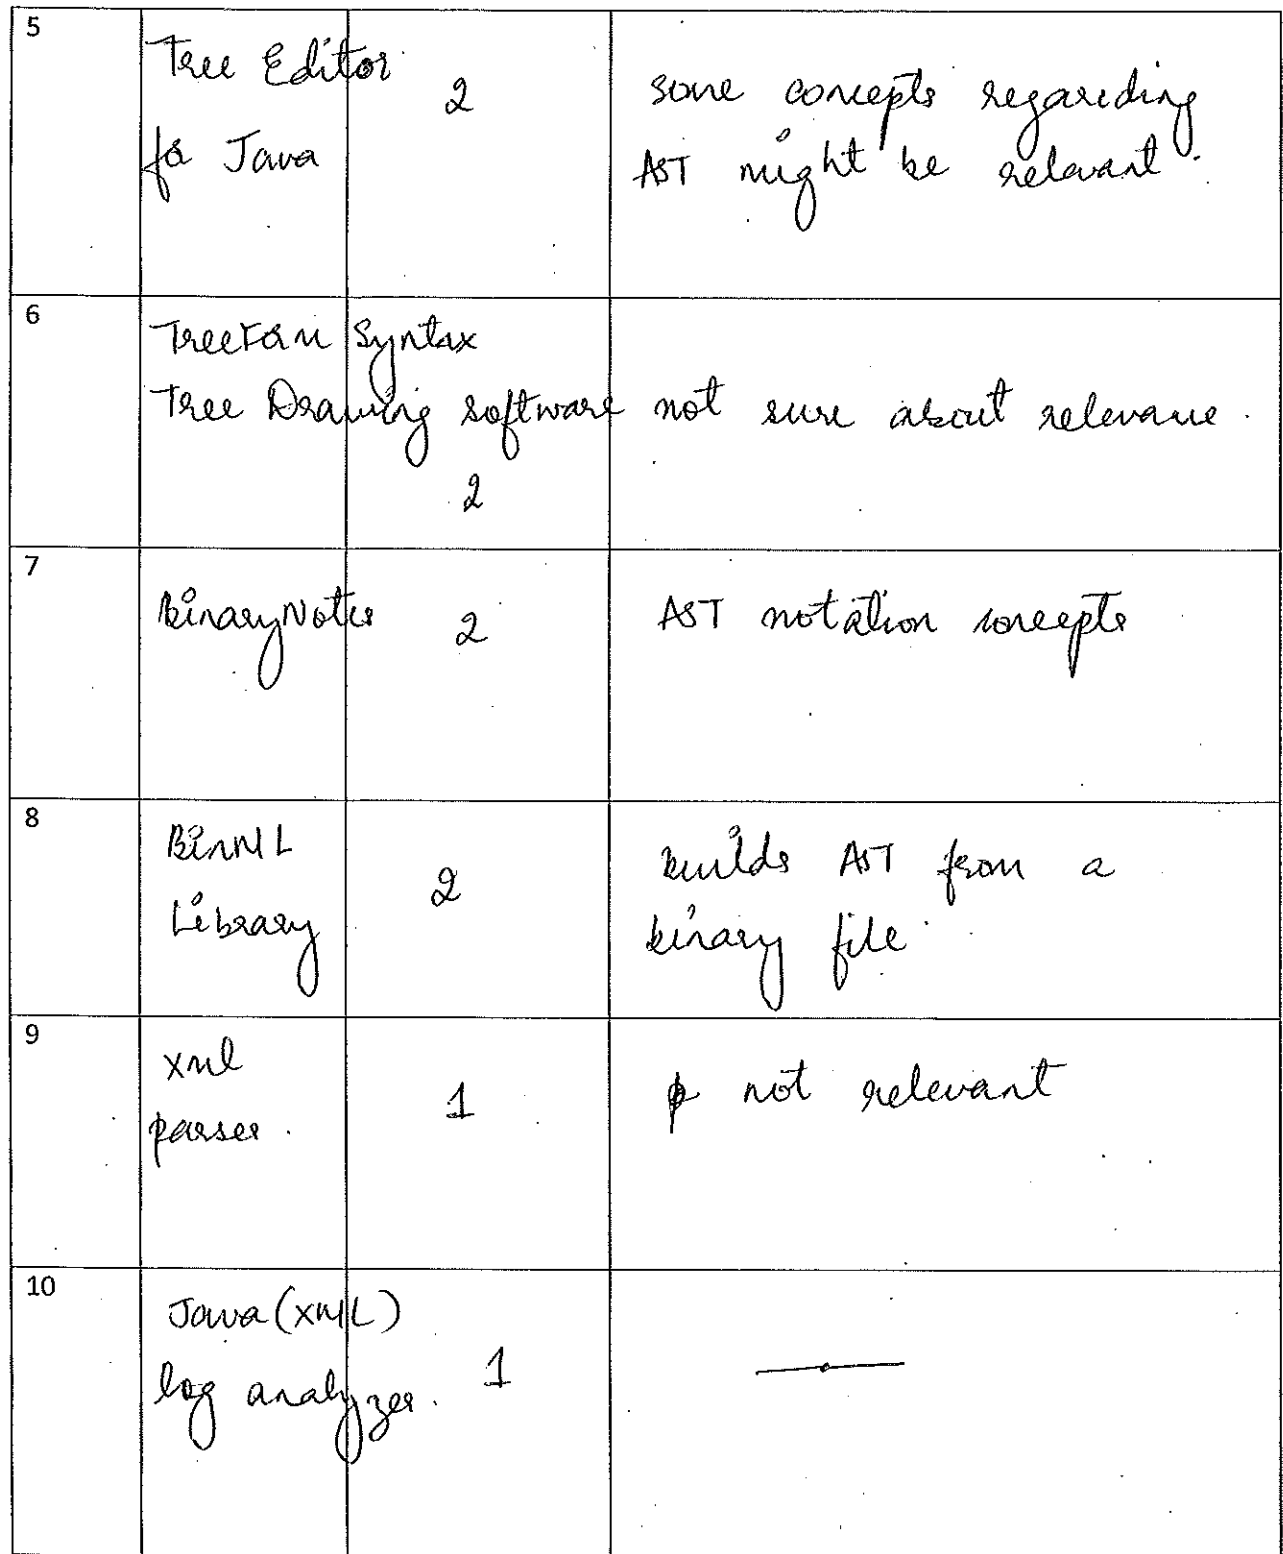 5
Tree Editor
2
some concepts regareding
for Java
AST might be relevant.
6
TreeForm Syntax
Tree Drawing software not sure about relevance.
2
7
BinaryNotes 2 AST notation concepts
8
BinML
2
builds AST from a
Library
binary file.
9
xml
1
not relevant
parser.
10
Java (XML)
1
log analyzer.